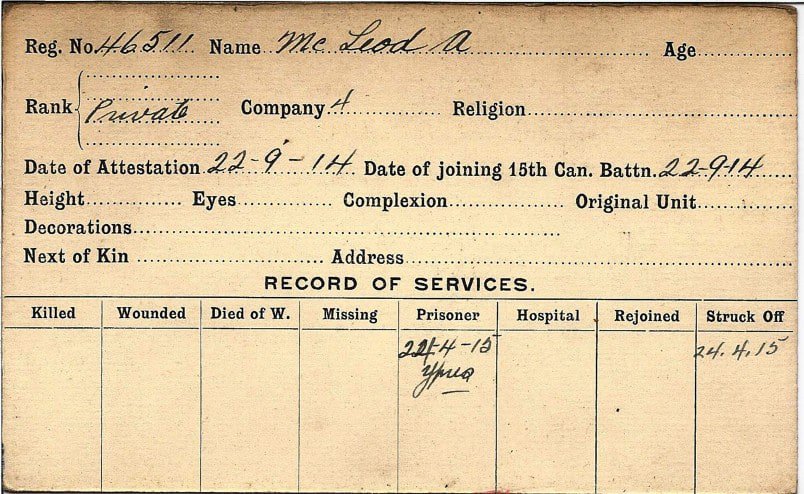 Reg. No. 46511 Name Mc Leod A Age
Rank Private Company 4 Religion
Date of Attestation 22-9-14 Date of joining 15th Can. Battn. 22-9-14
Height Eyes Complexion Original Unit
Decorations
Next of Kin Address
RECORD OF SERVICES.
Killed Wounded Died of W. Missing Prisoner Hospital Rejoined Struck Off
-4-15 24.4.15
Ypres